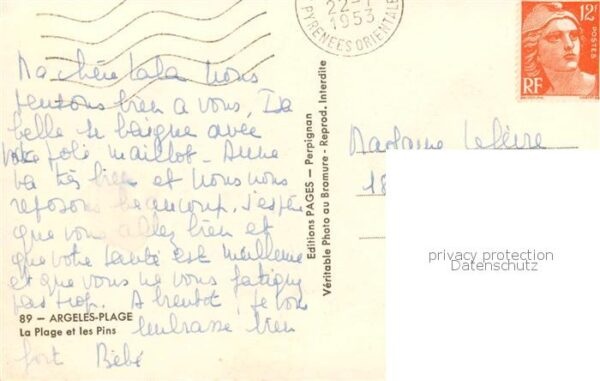 22-7
1953
PYRENEES ORIENTALES
12F
POSTES
RF
Ma chère Lala Nous
pensons bien a vous, Isa
belle se baigne avec
votre joli maillot - Anne
va très bien et nous nous
reposons beaucoup. J'espère
que vous allez bien et
que votre santé est meilleure
et que vous ne vous fatiguez
pas trop. A bientôt, je vous
embrasse bien
fort Bébé
89 — ARGELÈS-PLAGE
La Plage et les Pins
Editions PAGES — Perpignan
Véritable Photo au Bromure - Reprod. Interdite
Madame Lefèvre
18
privacy protection
Datenschutz